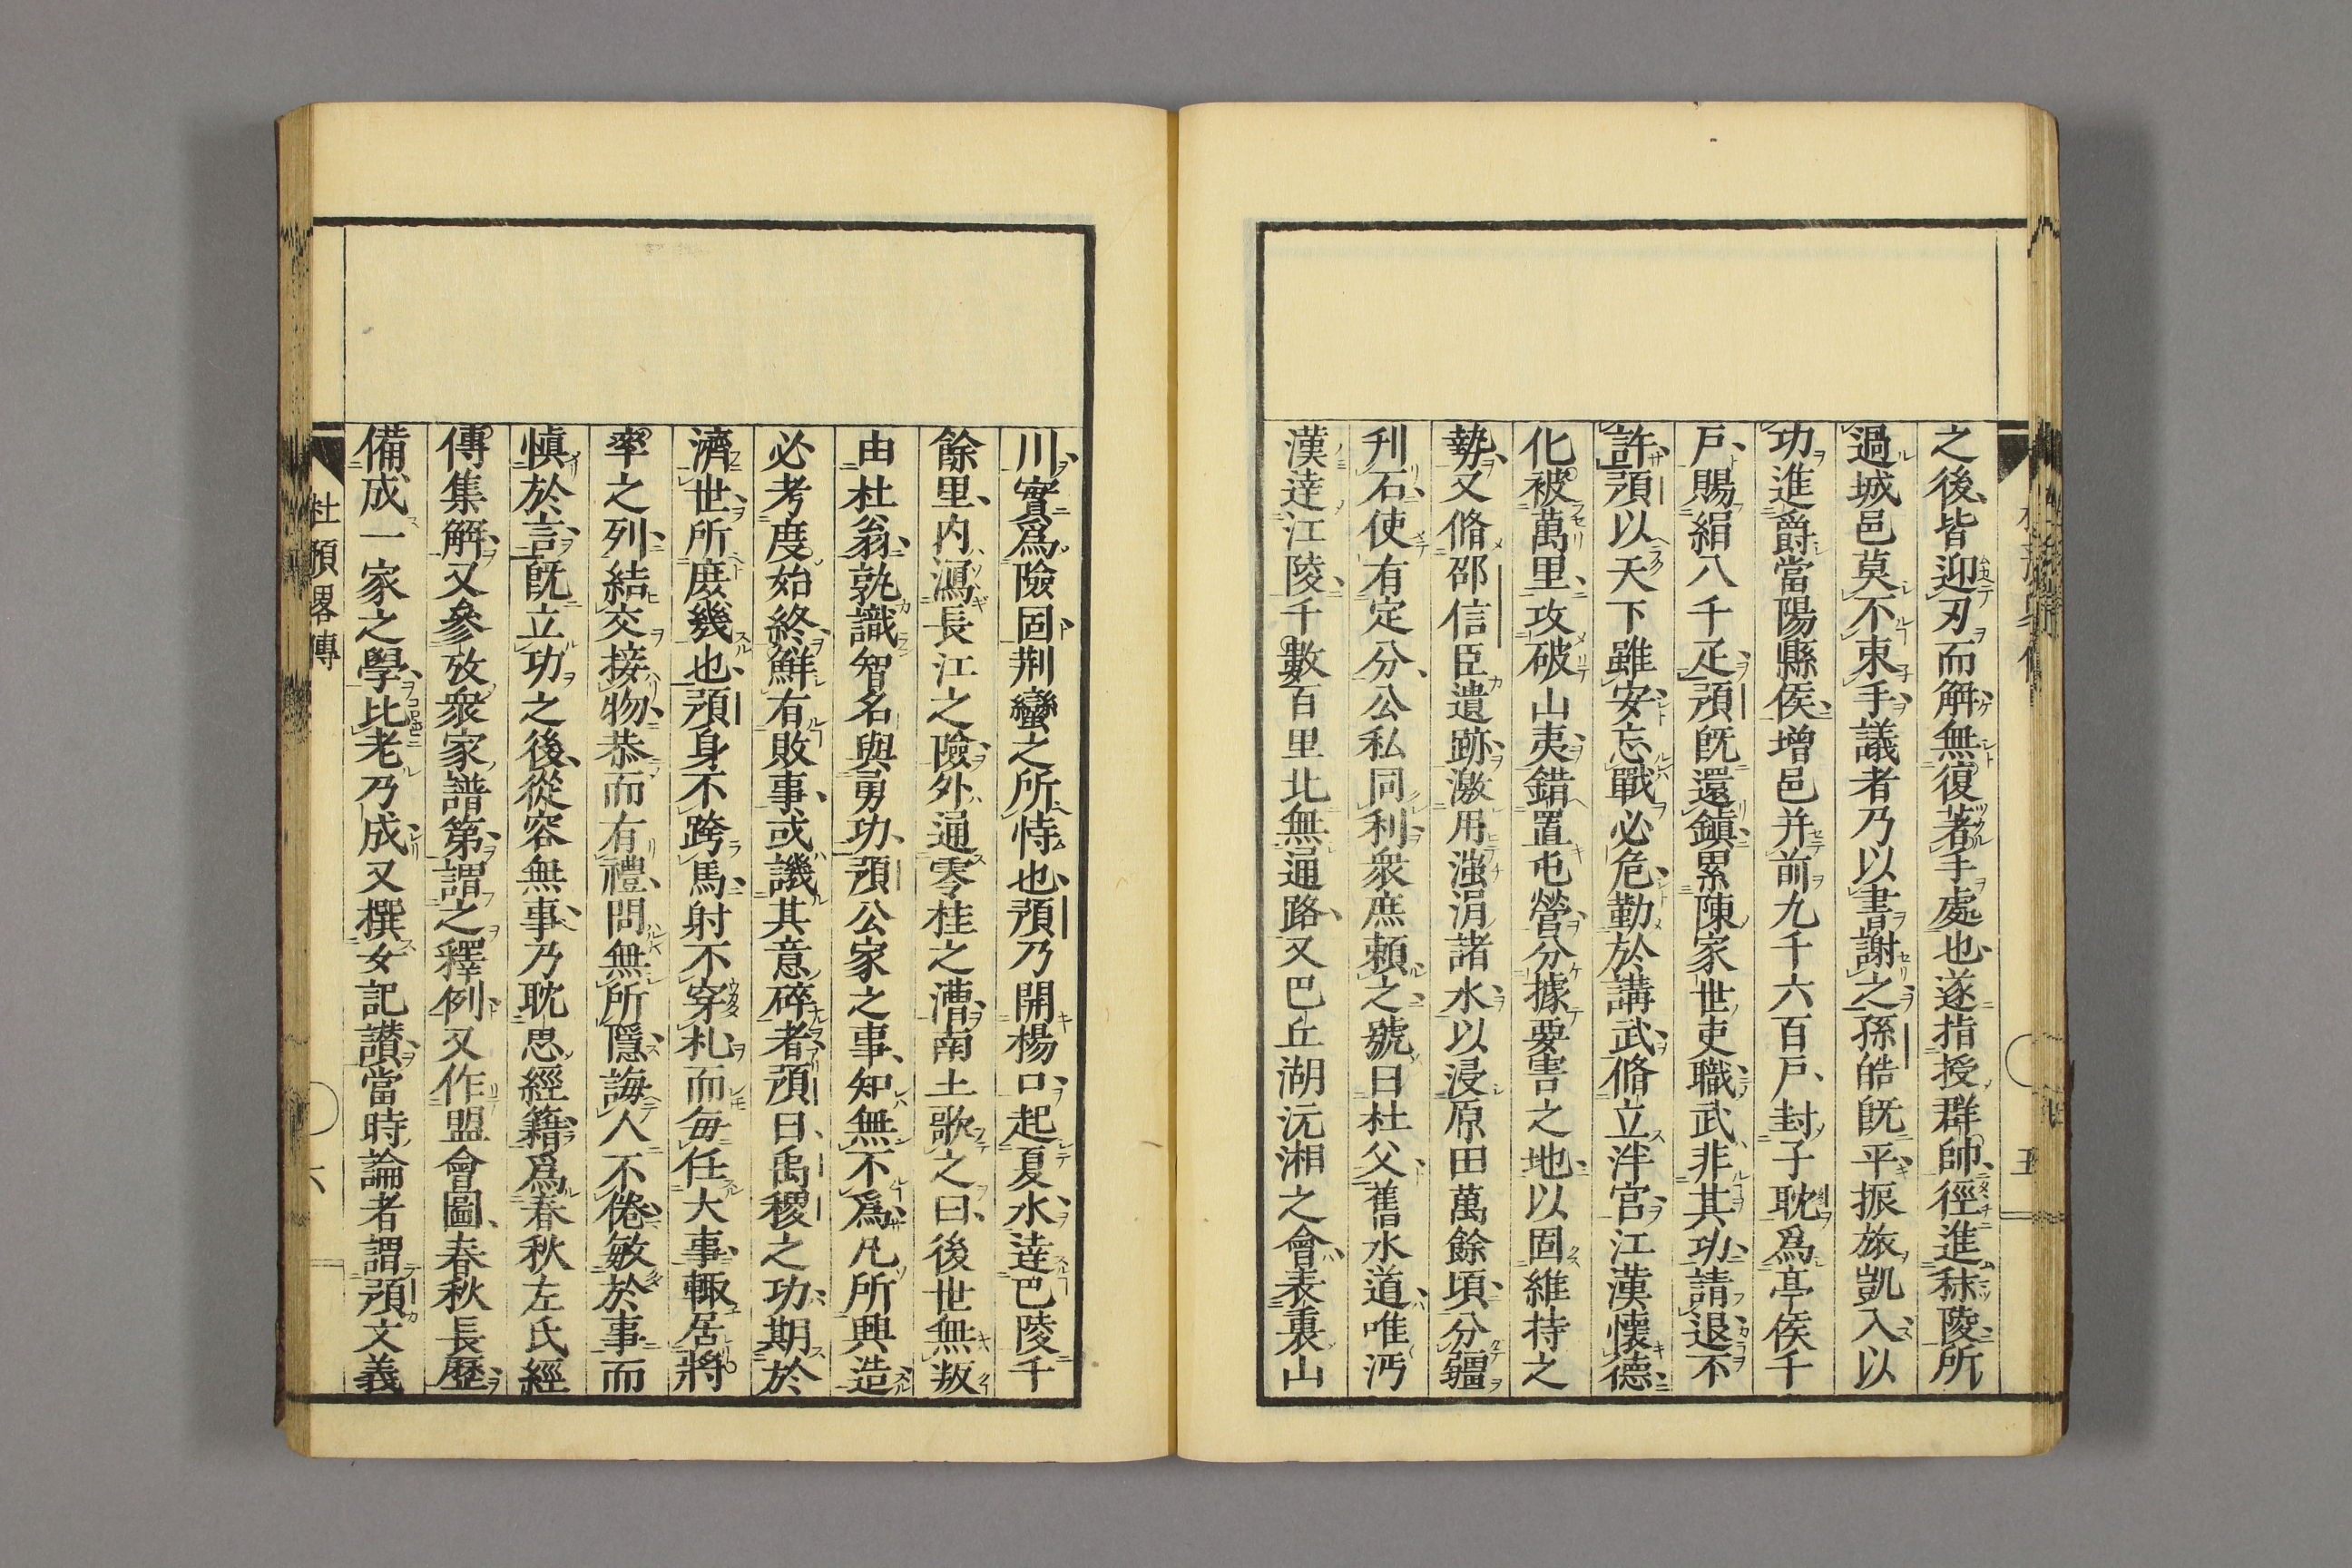 之後皆迎刃而解無復著手處也遂指授群帥徑進秣陵所
過城邑莫不束手議者乃以書謝之孫皓既平振旅凱入以
功進爵當陽縣侯增邑并前九千六百戸封子耽爲亭侯千
戸賜絹八千疋預既還鎮累陳家世吏職武非其功請退不
許預以天下雖安忘戰必危勤於講武脩立泮宮江漢懷德
化被萬里攻破山夷錯置屯營分據要害之地以固維持之
勢又脩邵信臣遺跡激用滍涓諸水以浸原田萬餘頃分疆
刋石使有定分公私同利衆庶賴之號曰杜父舊水道唯沔
漢達江陵千數百里北無通路又巴丘湖沅湘之會表裏山
川實爲險固荆蠻之所恃也預乃開楊口起夏水達巴陵千
餘里内瀉長江之險外通零桂之漕南土歌之曰後世無叛
由杜翁孰識智名與勇功預公家之事知無不爲凡所興造
必考度始終鮮有敗事或譏其意碎者預曰禹稷之功期於
濟世所庶幾也預身不跨馬射不穿札而毎任大事輙居將
率之列結交接物恭而有禮問無所隱誨人不倦敏於事而
愼於言既立功之後從容無事乃耽思經籍爲春秋左氏經
傳集解又參攷衆家譜第謂之釋例又作盟會圖春秋長歷
備成一家之學比老乃成又撰女記讃當時論者謂預文義
杜預畧傳
六
五